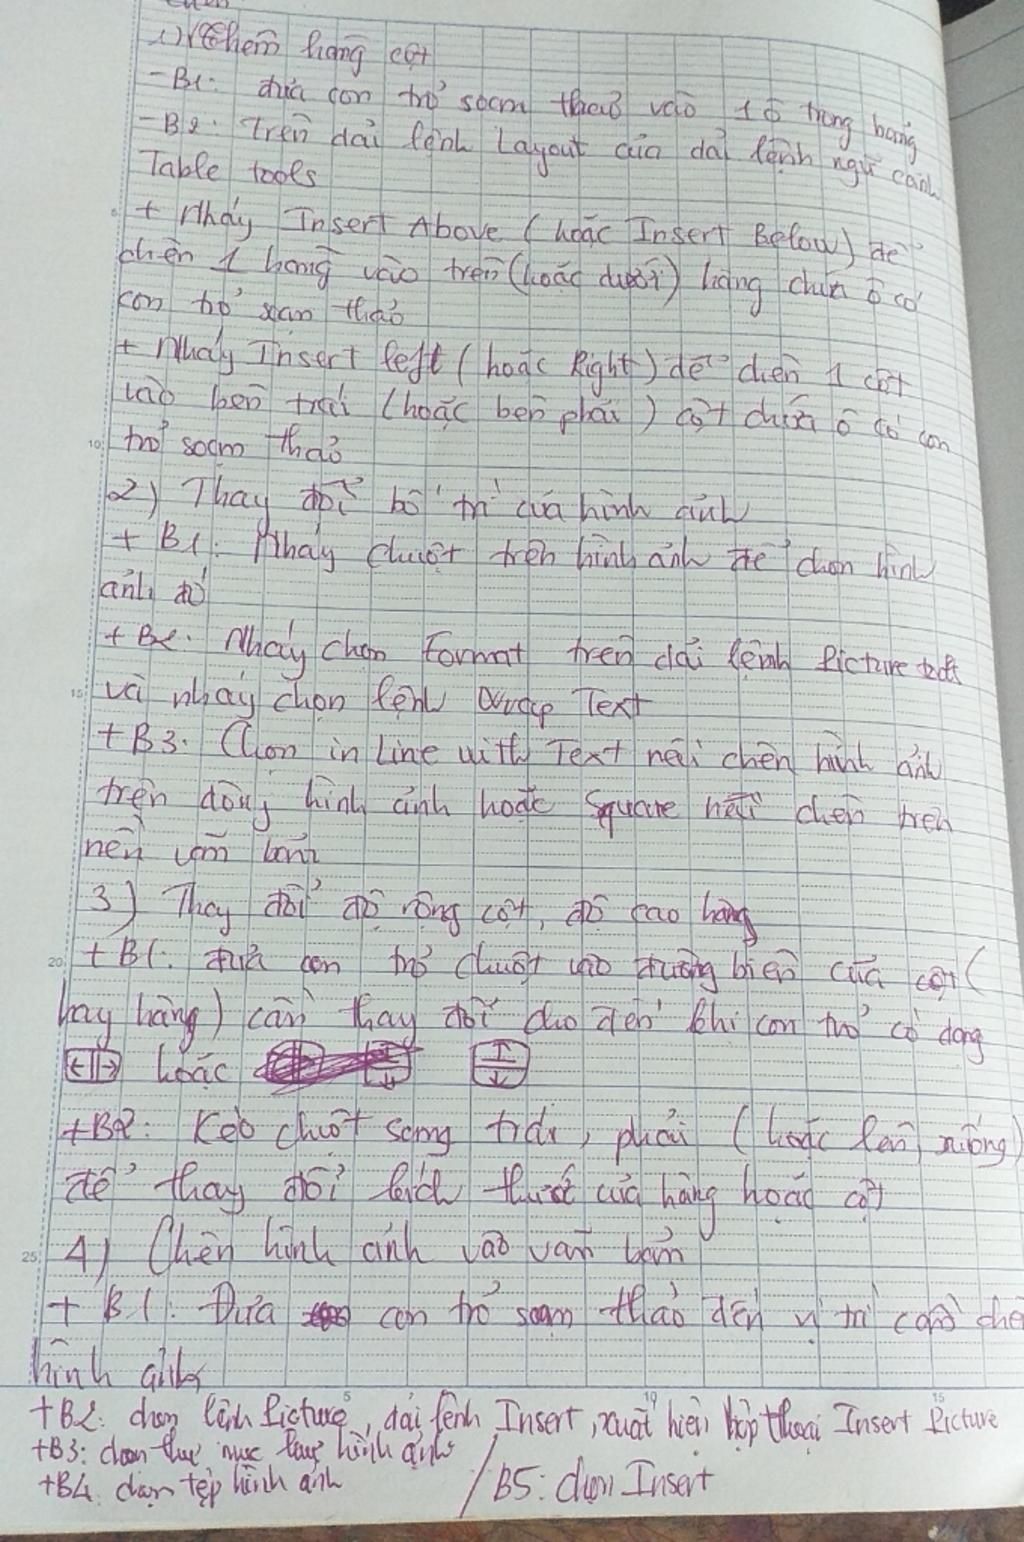 1) Thêm hàng cột
- B1: đưa con trỏ soạn thảo vào 1 ô trong bảng
- B2: trên dải lệnh Layout của dải lệnh ngữ cảnh
Table tools
+ Nháy Insert Above (hoặc Insert Below) để
chèn 1 hàng vào trên (hoặc dưới) hàng chứa ô có
con trỏ soạn thảo
+ Nháy Insert left (hoặc Right) để chèn 1 cột
vào bên trái (hoặc bên phải) cột chứa ô có con
trỏ soạn thảo
2) Thay đổi bố trí của hình ảnh
+ B1: Nháy chuột trên hình ảnh để chọn hình
ảnh đó
+ B2: Nháy chọn Format trên dải lệnh Picture tools
và nháy chọn lệnh Wrap Text
+ B3: Chọn in Line with Text nếu chèn hình ảnh
trên dòng hình ảnh hoặc Square nếu chèn trên
nền văn bản
3) Thay đổi độ rộng cột, độ cao hàng
+ B1: đưa con trỏ chuột vào đường biên của cột (
hay hàng) cần thay đổi cho đến khi con trỏ có dạng
hoặc
+ B2: Kéo chuột sang trái, phải (hoặc lên, xuống)
để thay đổi kích thước của hàng hoặc cột
4) Chèn hình ảnh vào văn bản
+ B1: Đưa con trỏ soạn thảo đến vị trí cần chè
hình ảnh
+ B2: chọn lệnh Picture, dải lệnh Insert, xuất hiện hộp thoại Insert Picture
+ B3: chọn thư mục lưu hình ảnh
+ B4: chọn tệp hình ảnh / B5: chọn Insert